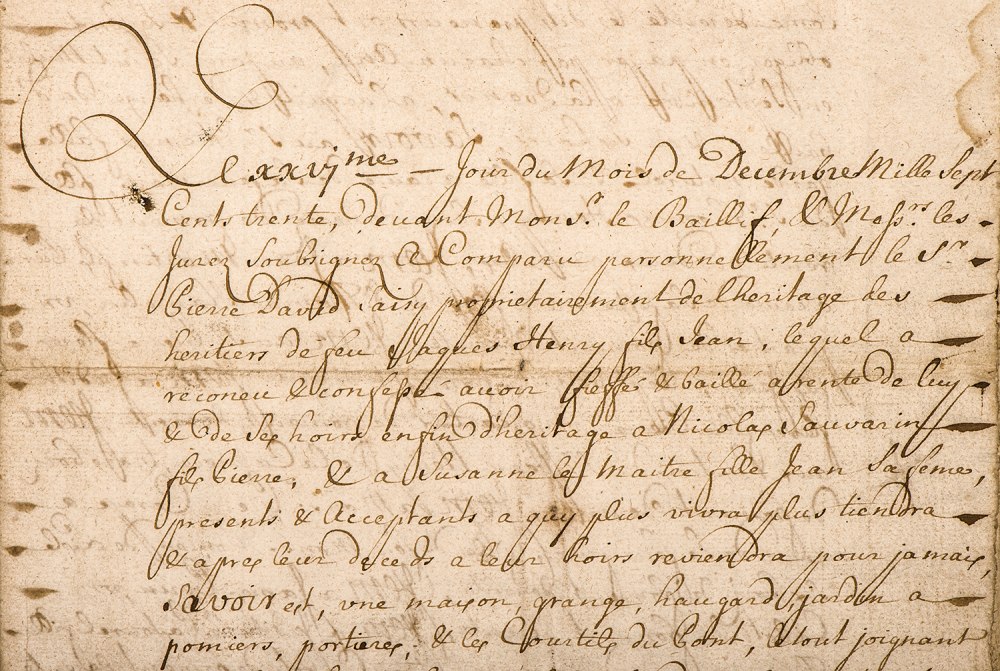 Le xxvj.me — Jour du Mois de Decembre Mille Sept
Cents trente, devant Mons.r le Baillif, & Mess.rs les
Jurez Soubsignez Est Comparu personnellement le S.r
Pierre David Saisy proprietairement de l'heritage des
heritiers de feu Jaques Henry fils Jean, lequel a
reconeu & confessé avoir fieffé & baillé a rente de luy
& de Ses hoirs enfin d'heritage a Nicolas Sauvarin
fils Pierre, & a Susanne le Maitre fille Jean Sa feme,
presents & Acceptants a quy plus vivra plus tiendra
& apres leur deceds a leur hoirs reviendra pour jamais,
Savoir est, vne maison, grange, haugard, jardin a
pomiers, portieres, & les Courtils du Pont, le tout joignant